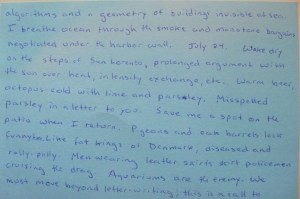 algorithms and a geometry of building invisible at sea.
I breathe ocean through the smoke and macabre bargains
negotiated under the harbor wall. July 24. Wave dry
on the steps of San
the sun over heat, intensity exchange, etc. Warm beer,
octopus cold with lime and parsley. Misspelled
parsley in a letter to you. Save me a spot on the
patio when I return. Pigeons and oak barrels look
funny to me like fat kings of Denmark, diseased and
rolly-polly. Men wearing leather shirts dirt policemen
cruising the drag. Aquariums are the enemy. We
must move beyond letter-writing; this is a call to